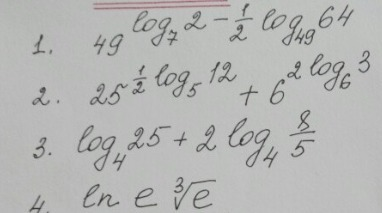 1. 49^{log_7 2 - \frac{1}{2} log_{49} 64}
2. 25^{\frac{1}{2} log_5 12} + 6^{2 log_6 3}
3. log_4 25 + 2 log_4 \frac{8}{5}
4. ln e \sqrt[3]{e}